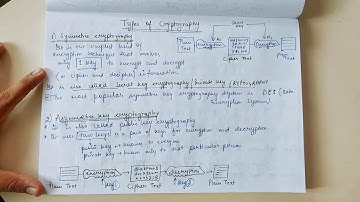 Types of Cryptography
1) Symmetric cryptography
It is the simplest kind of
encryption technique that involves
only 1 key to encrypt and decrypt
(or cipher and decipher) information.
Plain Text
encryption
Cipher Text
Decryption
Plain Text
It is also called secret key cryptography / private key cryptography.
The most popular symmetric key cryptography system is DES (Data
Encryption System).
2) Asymmetric key cryptography
It is also called public key cryptography
It uses two keys i.e. pair of keys for encryption and decryption
public key → known to everyone
private key → known only to that particular person
Plain Text
encryption
Key 1
Cipher Text
Decryption
Key 2
Plain Text